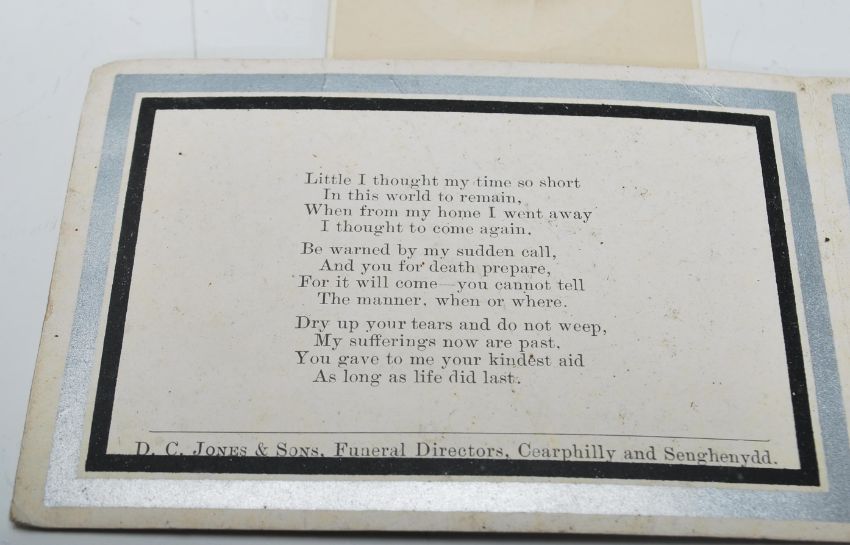 Little I thought my time so short
In this world to remain,
When from my home I went away
I thought to come again.
Be warned by my sudden call,
And you for death prepare,
For it will come—you cannot tell
The manner, when or where.
Dry up your tears and do not weep,
My sufferings now are past,
You gave to me your kindest aid
As long as life did last.
D. C. Jones & Sons, Funeral Directors, Cearphilly and Senghenydd.